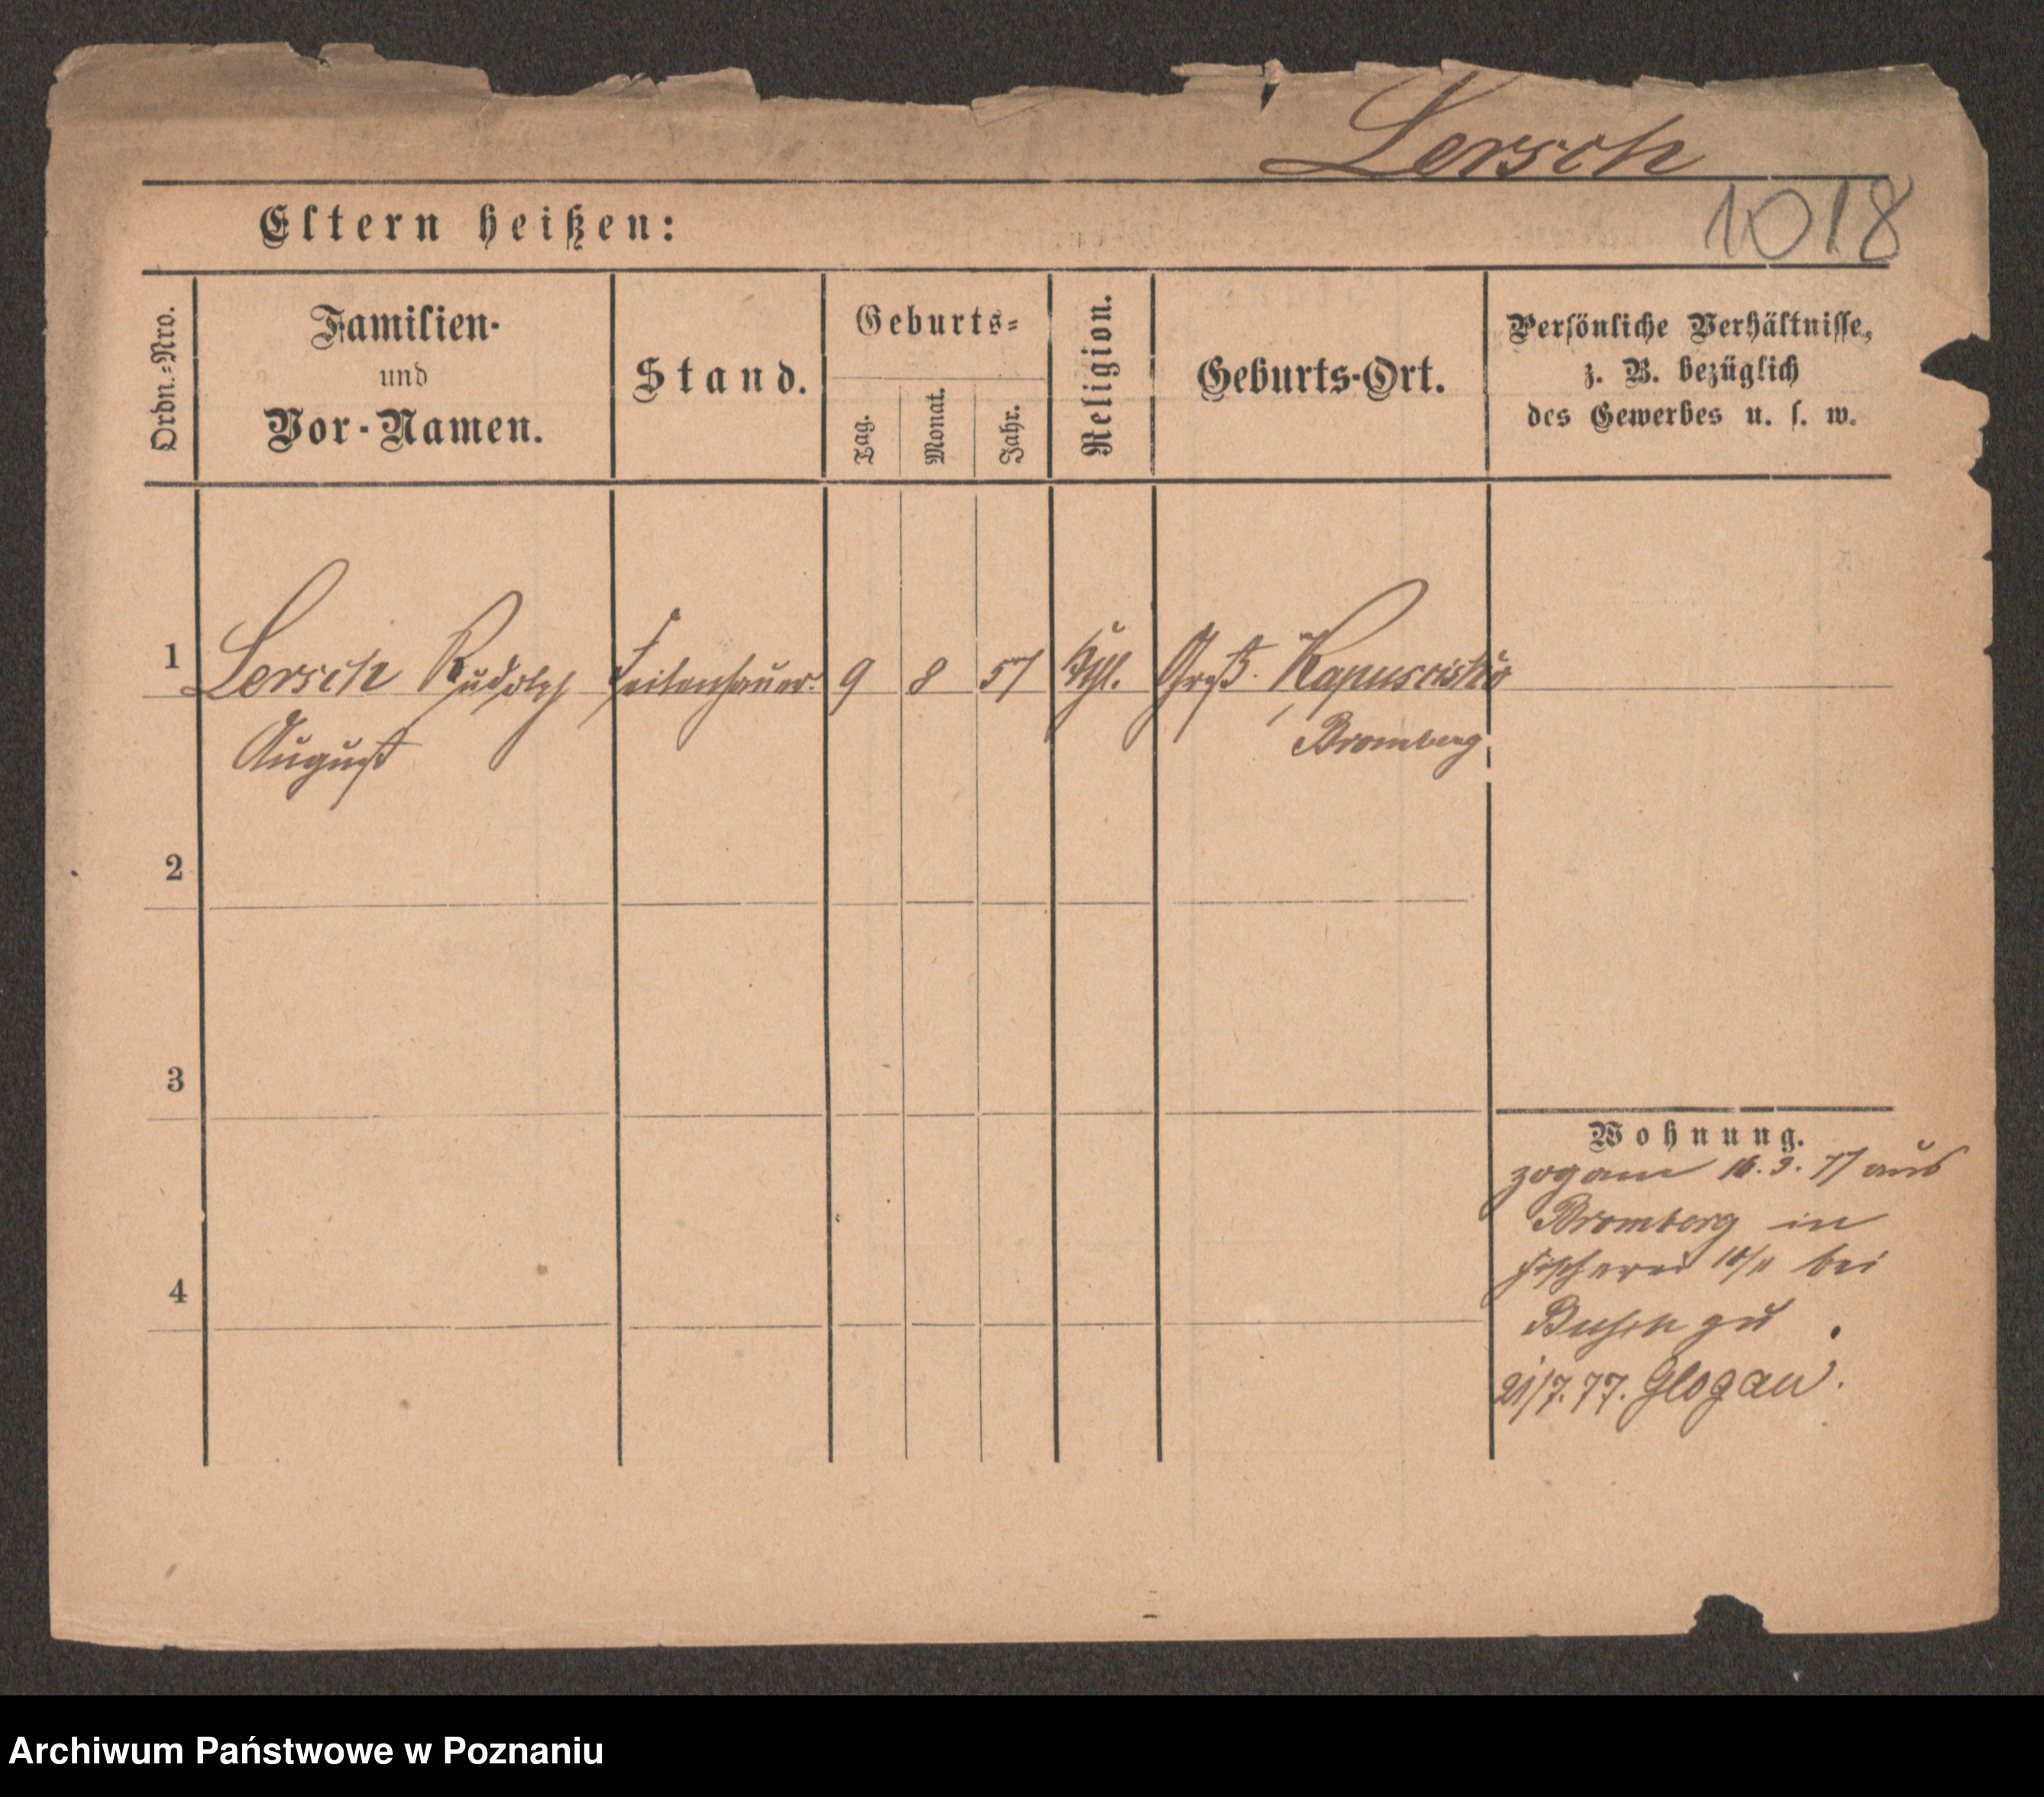 Lersch
1018
Eltern heißen:
Ordn.-Nro.
Familien-
und
Vor-Namen.
Stand.
Geburts-
Tag.
Monat.
Jahr.
Religion.
Geburts-Ort.
Persönliche Verhältnisse,
z. B. bezüglich
des Gewerbes u. s. w.
1 Lersch Rudolph Feilenhauer. 9 8 57 Kthl. Groß.
August Bromberg
2
3
4
Wohnung.
zog am 16. 3. 77 aus
Bromberg in
Fischerei 10/11 bei
Busch zu
21/7. 77. Glogau.
Archiwum Państwowe w Poznaniu